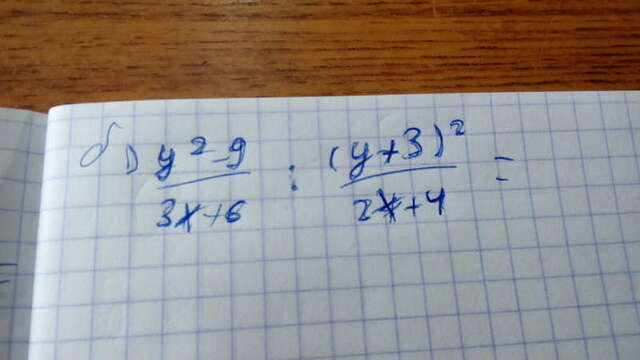 б) y² - 9 / 3x + 6 : (y + 3)² / 2x + 4 =